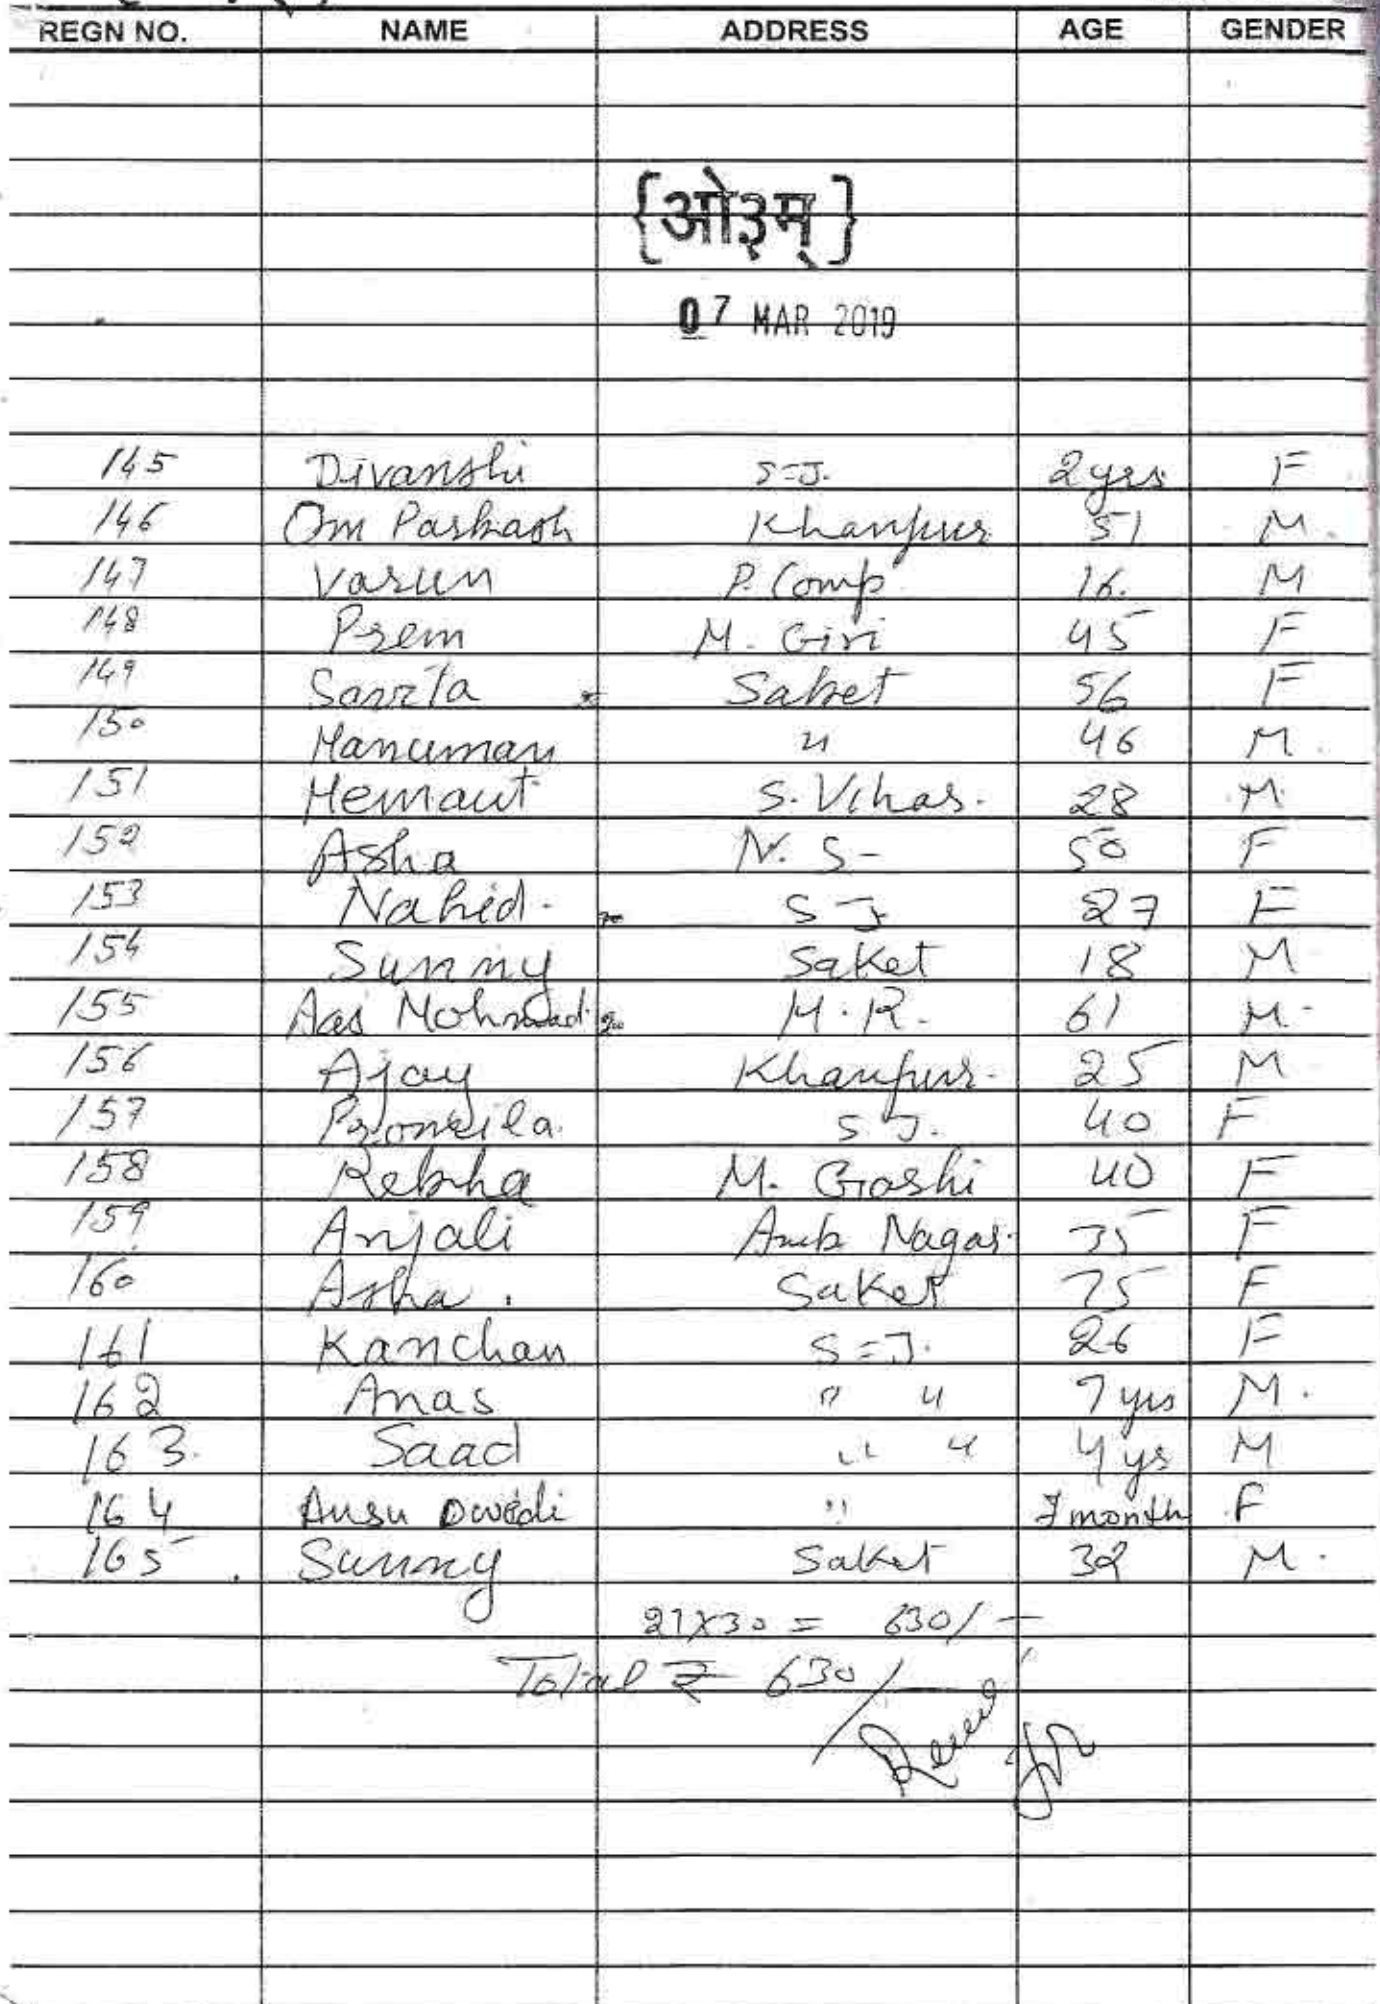 REGN NO. NAME ADDRESS AGE GENDER
{ओ३म्}
07 MAR 2019
145 Divanshi S=J. 2yrs F
146 Om Parkash Khanpur 51 M.
147 Varun P. Comp 16. M
148 Prem M. Giri 45 F
149 Savita Saket 56 F
150 Hanuman " 46 M.
151 Hemant S. Vihar. 28 M
152 Asha N. S- 50 F
153 Nahid. S J 27 F
154 Sunny Saket 18 M
155 Aas Mohmad H.R. 61 M-
156 Ajay Khanpur. 25 M
157 S J. 40 F
158 Rekha M. Garhi 40 F
159 Anjali Amb Nagar. 35 F
160 Asha. Saket 75 F
161 Kanchan S=J. 26 F
162 Anas " " 7 yrs M.
163. Saad " " 4 ys M
164 Ansu Dwedi " 7 month F
165 Sunny Saket 32 M.
21X30 = 630/-
Total ₹ 630/